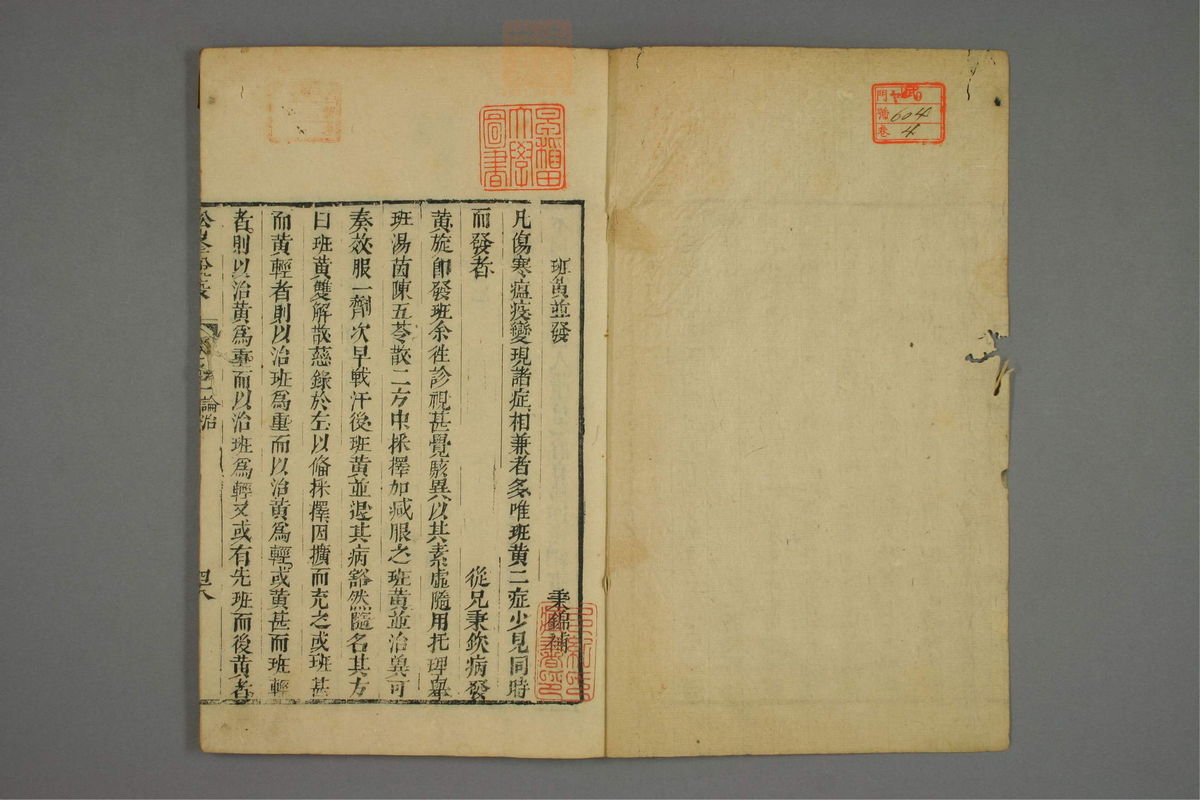 門 ヤ09
號 604
卷 4
早稲田
大學
圖書
班黃並發
秉錦補
凡傷寒瘟疫變現諸症相兼者多唯班黃二症少見同時
而發者 從兄秉欽病發
黃旋卽發班余徃診視甚覺駭異以其素虛隨用托裡舉
班湯茵陳五苓散二方中採擇加减服之班黃並治兾可
奏效服一劑次早戰汗後班黃並退其病豁然隨名其方
曰班黃雙解散慈錄於左以俻採擇因擴而充之或班甚
而黃輕者則以治班為重而以治黃為輕或黃甚而班輕
者則以治黃為重而以治班為輕又或有先班而後黃者
論治
四八